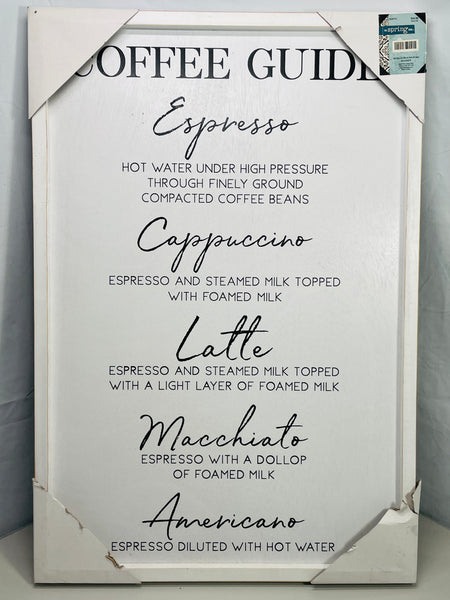 COFFEE GUIDE
Espresso
HOT WATER UNDER HIGH PRESSURE
THROUGH FINELY GROUND
COMPACTED COFFEE BEANS
Cappuccino
ESPRESSO AND STEAMED MILK TOPPED
WITH FOAMED MILK
Latte
ESPRESSO AND STEAMED MILK TOPPED
WITH A LIGHT LAYER OF FOAMED MILK
Macchiato
ESPRESSO WITH A DOLLOP
OF FOAMED MILK
Americano
ESPRESSO DILUTED WITH HOT WATER
spring